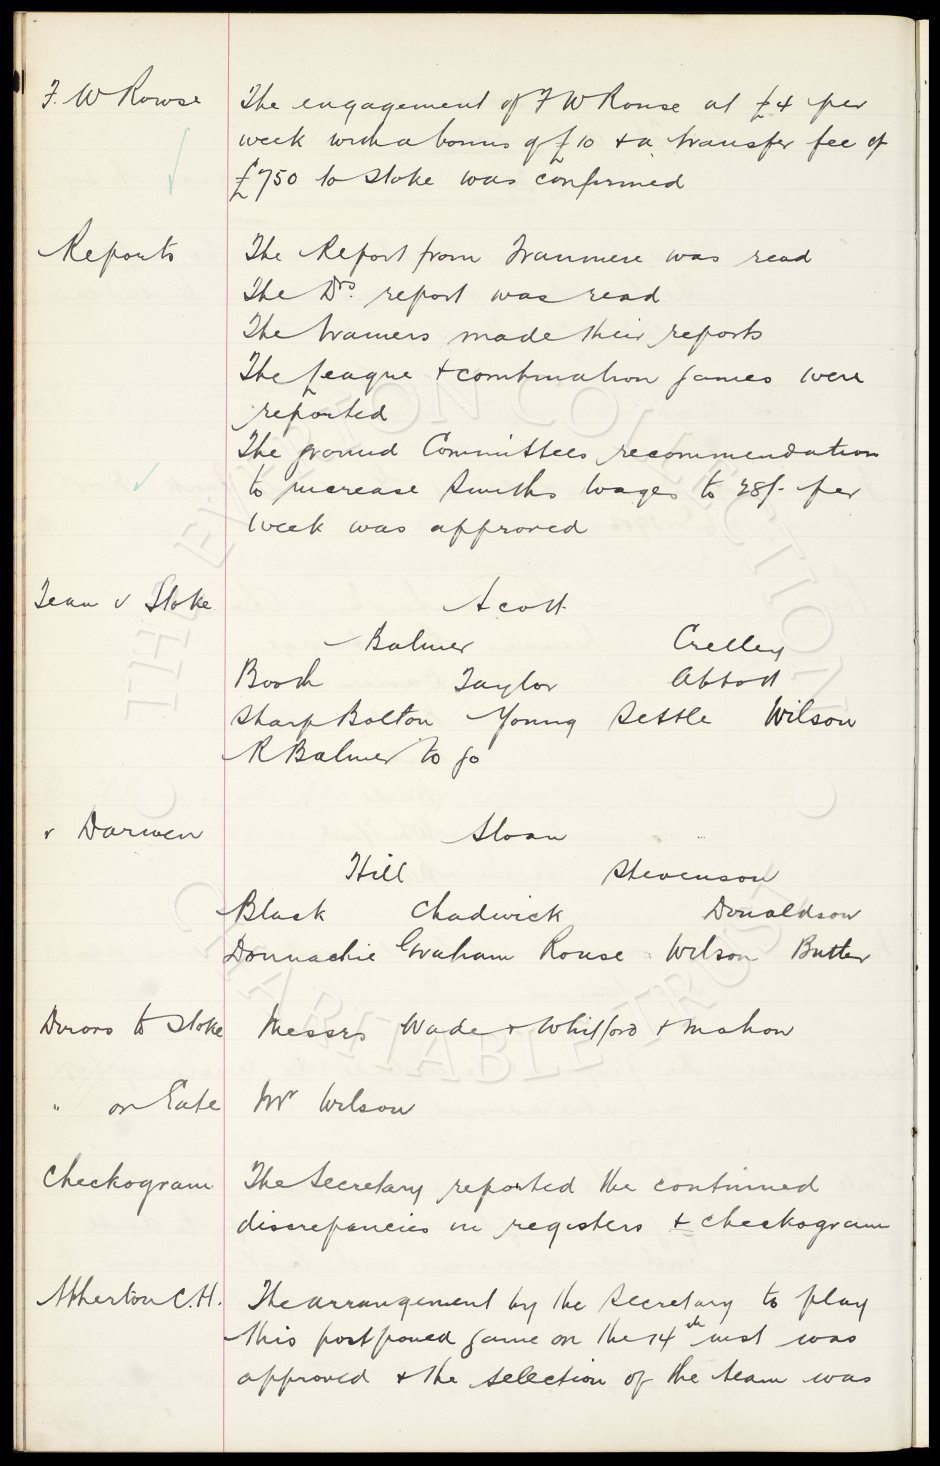 F. W Rowse The engagement of F W Rouse at £4 per
week with a bonus of £10 & a transfer fee of
£750 to Stoke was confirmed
Reports The Report from Tranmere was read
The Drs. report was read
The trainers made their reports
The League & combination games were
reported
The ground Committees recommendation
to increase Smiths wages to 28/- per
week was approved
Team v Stoke Scott
Balmer Crelley
Booth Taylor Abbott
Sharp Bolton Young Settle Wilson
R Balmer to go
v Darwen Sloan
Hill Stevenson
Black Chadwick Donaldson
Donnachie Graham Rouse Wilson Butler
Dirors to Stoke Messrs Wade & Whitford & Mahon
" on Gate Mr Wilson
Checkogram The Secretary reported the continued
discrepancies in registers & checkogram
Atherton C.H. The arrangement by the Secretary to play
this postponed game on the 14th inst was
approved & the selection of the team was
© THE EVERTON COLLECTION ©
CHARITABLE TRUST